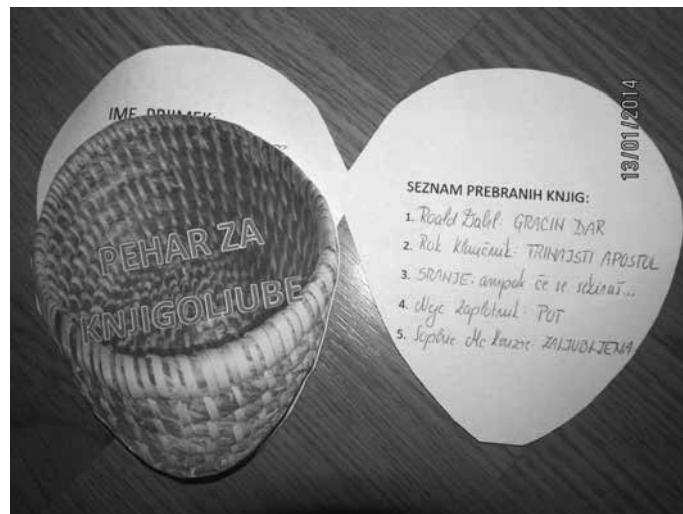 IME, PRIIMEK:
PEHAR ZA
KNJIGOLJUBE
13/01/2014
SEZNAM PREBRANIH KNJIG:
1. Roald Dahl: GRACIN DAR
2. Rok Ključnik: TRINAJSTI APOSTOL
3. SRANJE, ampak če se sekiraš...
4. Nejc Zaplotnik: POT
5. Sophie Mc Kenzie: ZALJUBLJENA